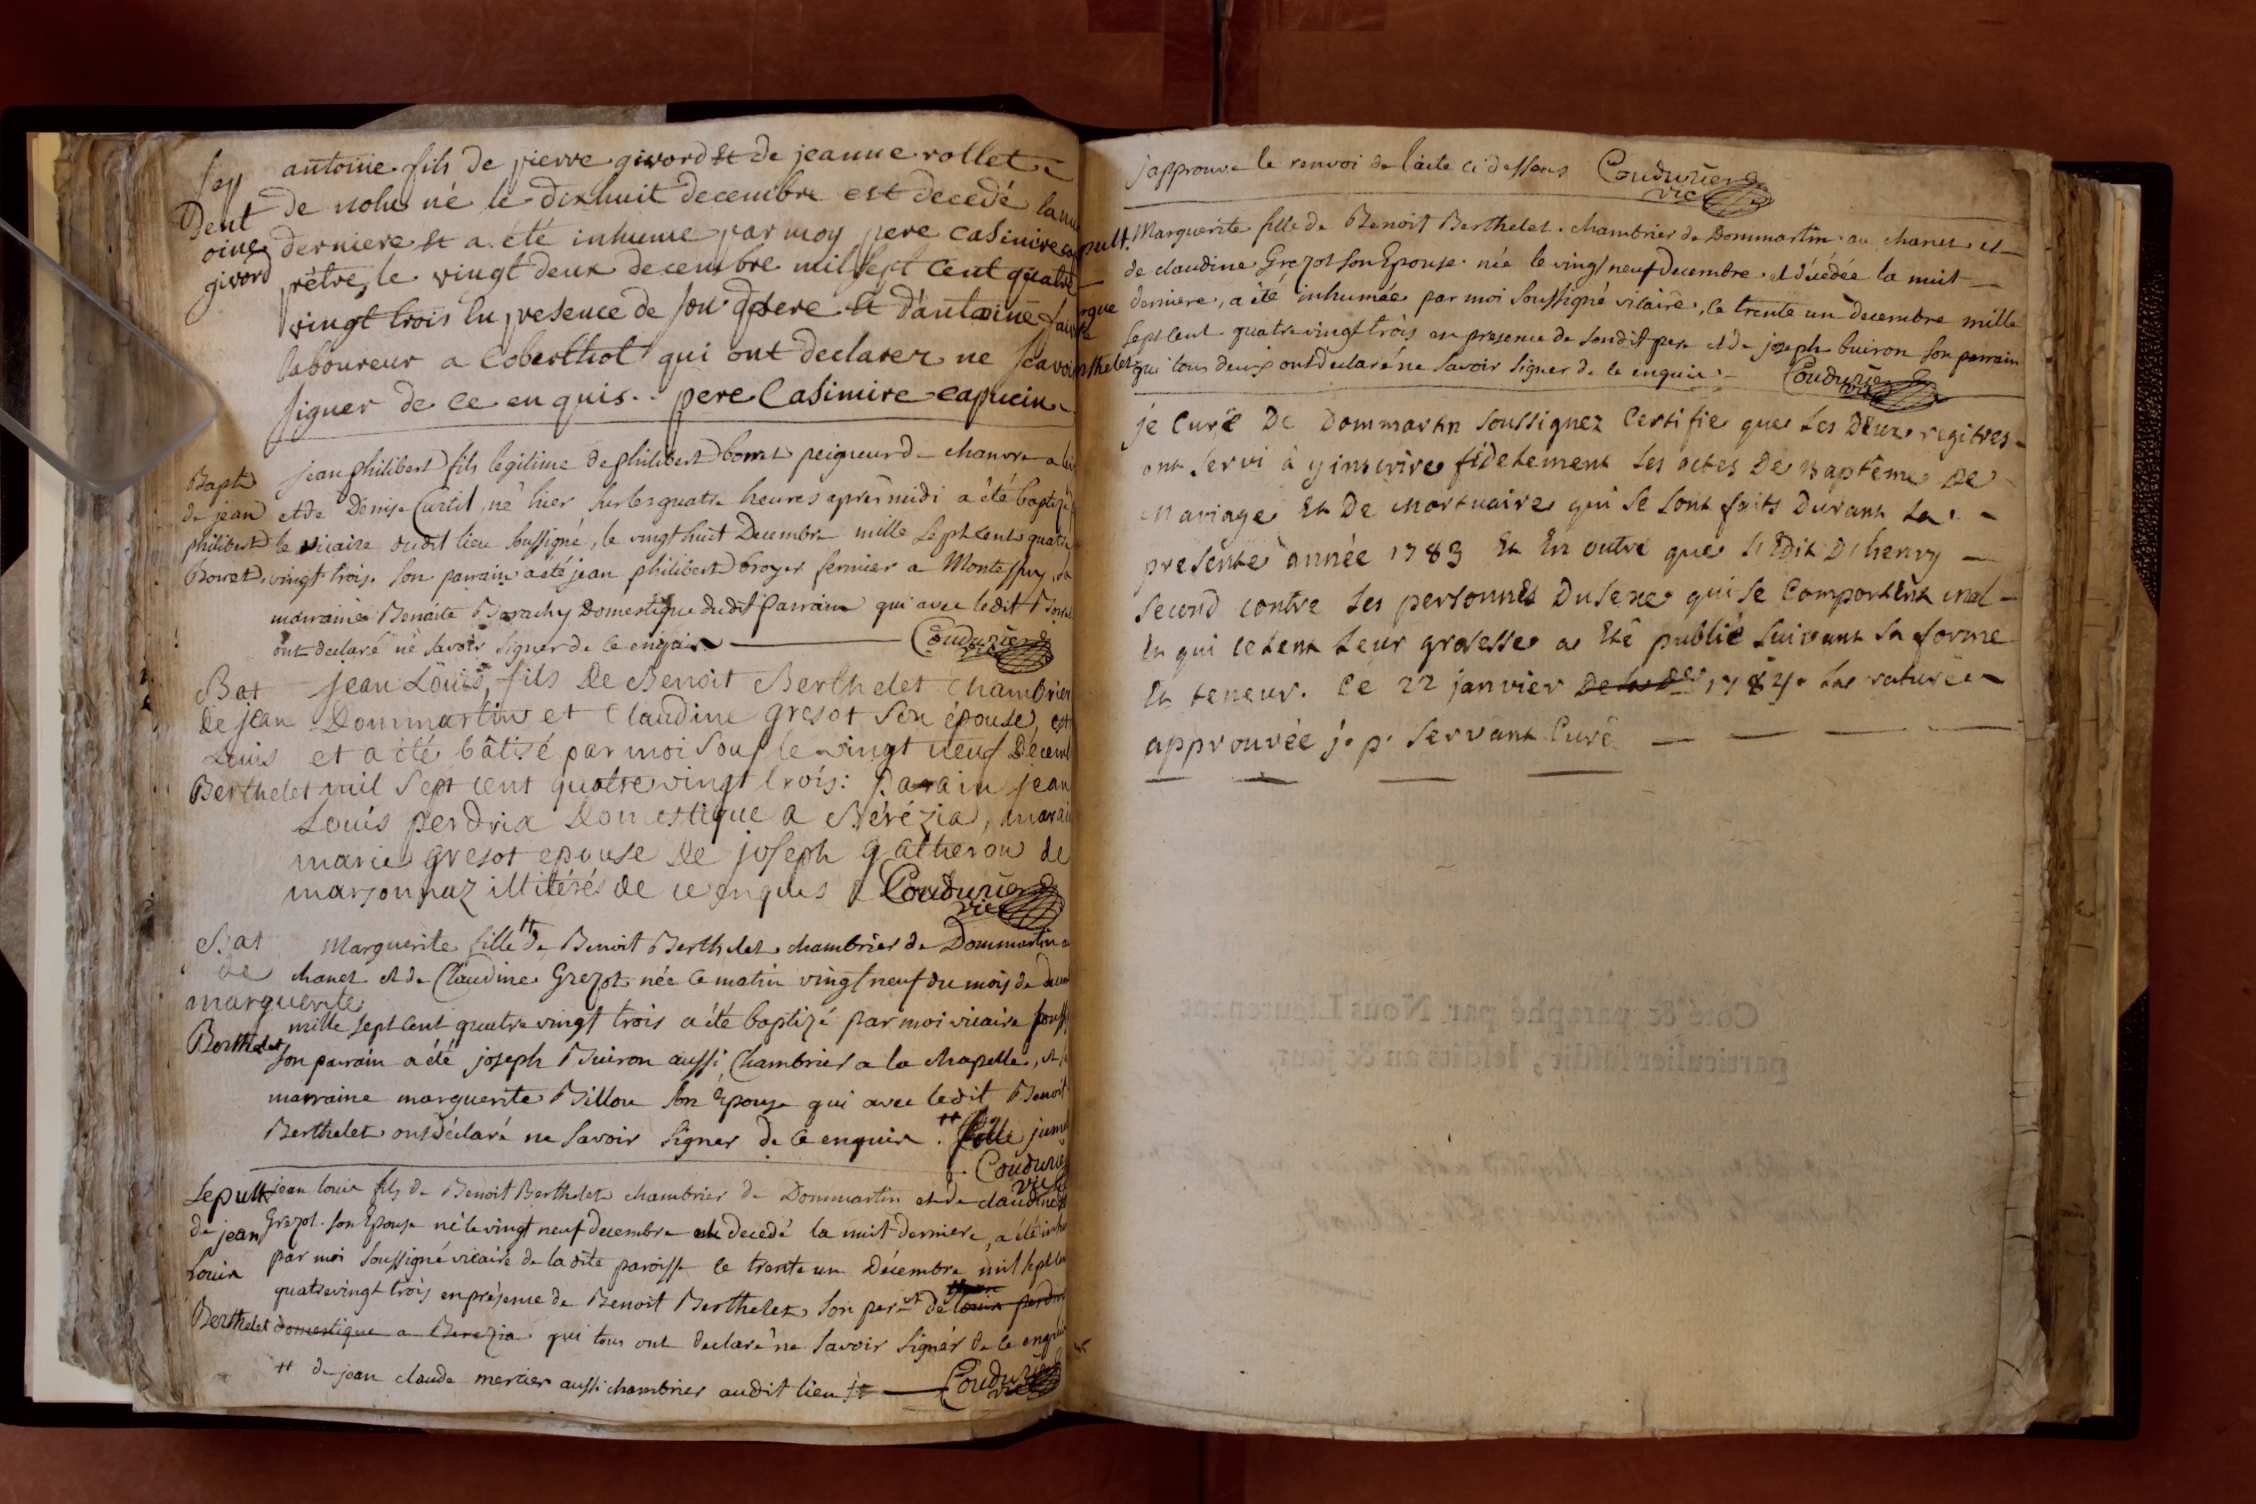 Sep
Dent
oine
givord
antoine fils de pierre givord et de jeanne rollet
de nolu né le dixhuit decembre est decedé la nui
derniere et a été inhume par moy pere casimire ca
prêtre, le vingt deux decembre mil sept cent quatre
vingt trois en presence de son pere et d'antoine
laboureur a Coberthot qui ont declarer ne scavoi
signer de ce enquis.. pere Casimire capucin
Bapt
de jean
philibert
Bornet
jean philibert fils legitime de philibert bornet peigneur de chanvre a
et de Denise Curtil, né hier sur les quatre heures après midi a été baptizé
le vicaire dudit lieu soussigné, le vingt huit Decembre mille sept cent quatre
vingt trois. son parrain a été jean philibert broyer fermier a Montessuy, sa
marraine Benoite Borachy Domestique dudit Parrain qui avec ledit
ont declaré ne savoir signer de ce enquis Coudurier
vic
Bat
de jean
Louis
Berthelet
jean Louis, fils De Benoit Berthelet Chambrier
Dommartin et Claudine gresot son épouse, est
et a été bâtisé par moi sous le vingt neuf Décem
mil sept cent quatre vingt trois: parain jean
Louis perdrix Domestique a Bérézia, marai
marie gresot epouse De joseph gatheron de
marsonnaz illitérés de ce enquis Coudurier
vic
Bat
de
marguerite
Berthelet
Marguerite fille ++ de Benoit Berthelet chambrier de Dommartin a
chanet et de Claudine Grezot née ce matin vingt neuf du mois de decem
mille sept cent quatre vingt trois a été baptizé par moi vicaire souss
son parrain a été joseph Buiron aussi Chambrier a la chapelle, et sa
marraine marguerite Billon son Epouse qui avec ledit Benoit
Berthelet ont déclaré ne savoir signer de ce enquis. ++ jume
Coudurier
vic
Sepult
de jean
Louis
Berthelet
jean louis fils de Benoit Berthelet chambrier de Dommartin et de claudine
Grezot son Epouse né le vingt neuf decembre decedé la nuit derniere, a été inhu
par moi soussigné vicaire de la dite paroisse le trente un Décembre mil sept cen
quatrevingt trois en présence de Benoit Berthelet son pere et de louis perdri
domestique a Berezia qui tous ont declaré ne savoir signer de ce enquis
++ de jean claude mercier aussi chambrier audit lieu ++ Coudurier
vic
j'approuve le renvoi de l'acte ci dessous Coudurier
vic
pult.
rgue
rthelet
Marguerite fille de Benoit Berthelet chambrier de Dommartin au chanet et
de claudine Grezot son Epouse née le vingt neuf decembre et décédée la nuit
derniere, a été inhumée par moi soussigné vicaire, le trente un decembre mille
sept cent quatre vingt trois en presence de sondit pere et de joseph buiron son parrain
qui tous deux ont declaré ne savoir signer de ce enquis. Coudurier
vic
je Curé De Dommartin soussignez Certifie que les Deux regitres
ont servi à y inscrire fidelement les actes De Baptême De
Mariage Et De Mortuaire qui se sont faits Durant la
presente année 1783 Et En outre que l'Edit D'henry
second contre les personnes Du sexe qui se comportent mal
Et qui celent leur grosesse a Eté publié suivant sa forme
Et teneur. Ce 22 janvier 1784. La rature
approuvée j. p. Servant Curé